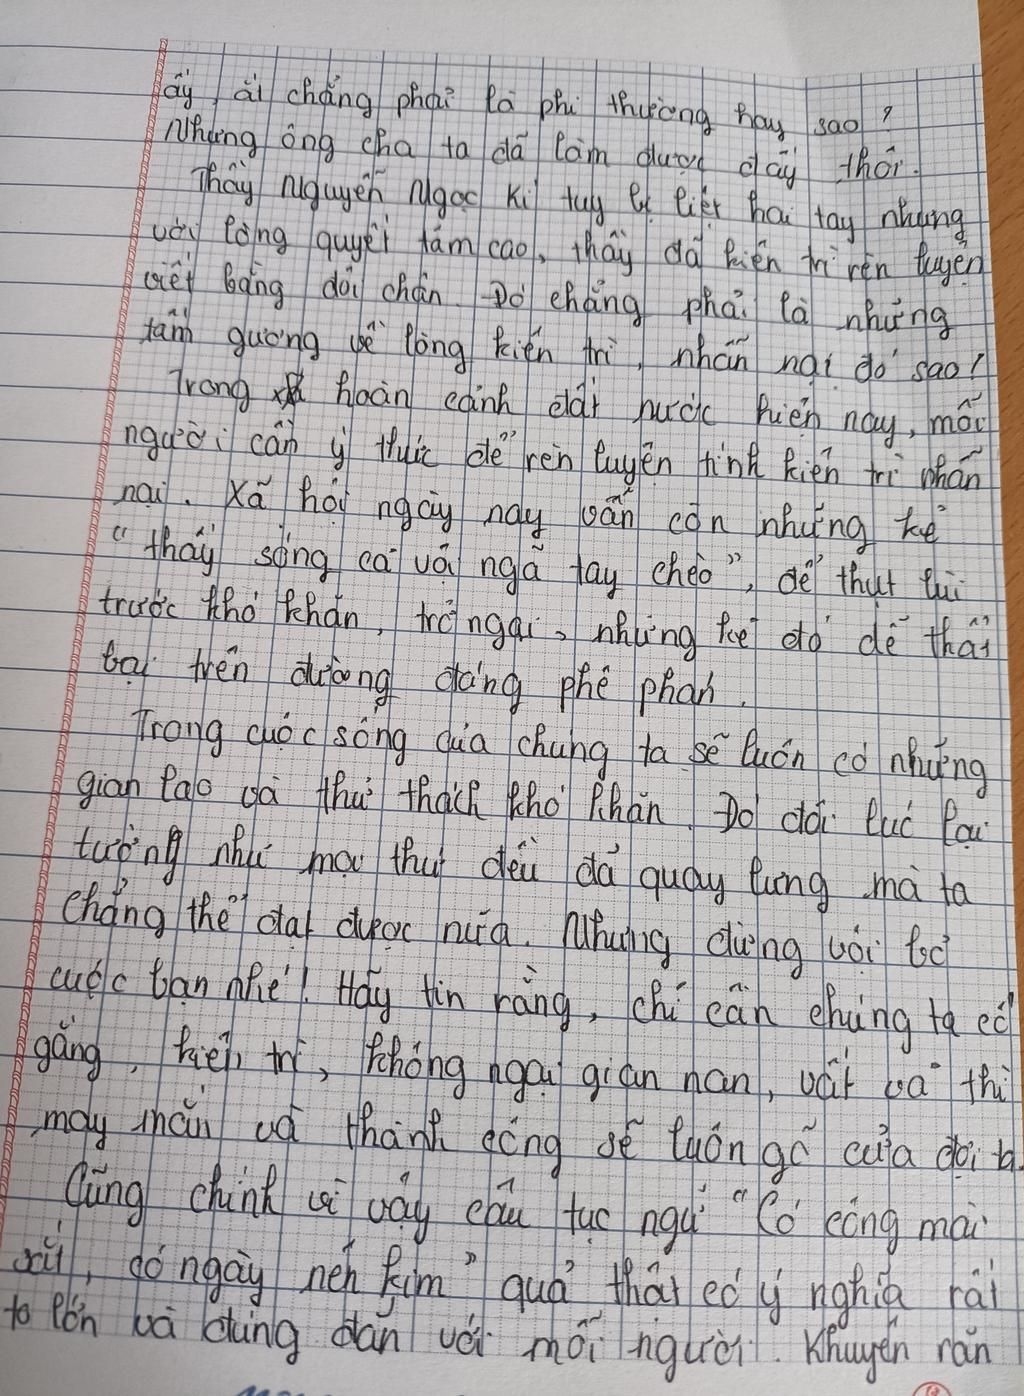 ấy, ai chẳng phải là phi thường hay sao?
Nhưng ông cha ta đã làm được đấy thôi.
Thầy Nguyễn Ngọc Kí tuy bị liệt hai tay nhưng
với lòng quyết tâm cao, thầy đã kiên trì rèn luyện
viết bằng đôi chân. Đó chẳng phải là những
tấm gương về lòng kiên trì, nhẫn nại đó sao!
Trong hoàn cảnh đất nước hiện nay, mỗi
người cần ý thức để rèn luyện tính kiên trì nhẫn
nại. Xã hội ngày nay vẫn còn những kẻ
"thấy sóng cả vội ngã tay chèo", dễ thụt lùi
trước khó khăn, trở ngại, những kẻ đó dễ thất
bại trên đường đáng phê phán.
Trong cuộc sống của chúng ta sẽ luôn có những
gian lao và thử thách khó khăn. Do đôi lúc lại
tưởng như mọi thứ đều đã quay lưng mà ta
chẳng thể đạt được nữa. Nhưng đừng vội bỏ
cuộc bạn nhé! Hãy tin rằng, chỉ cần chúng ta cố
gắng, kiên trì, không ngại gian nan, vất vả thì
may mắn và thành công sẽ luôn gõ cửa đợi ta.
Cũng chính vì vậy câu tục ngữ "Có công mài
sắt, có ngày nên kim" quả thật có ý nghĩa rất
to lớn và đúng đắn với mỗi người. Khuyên răn